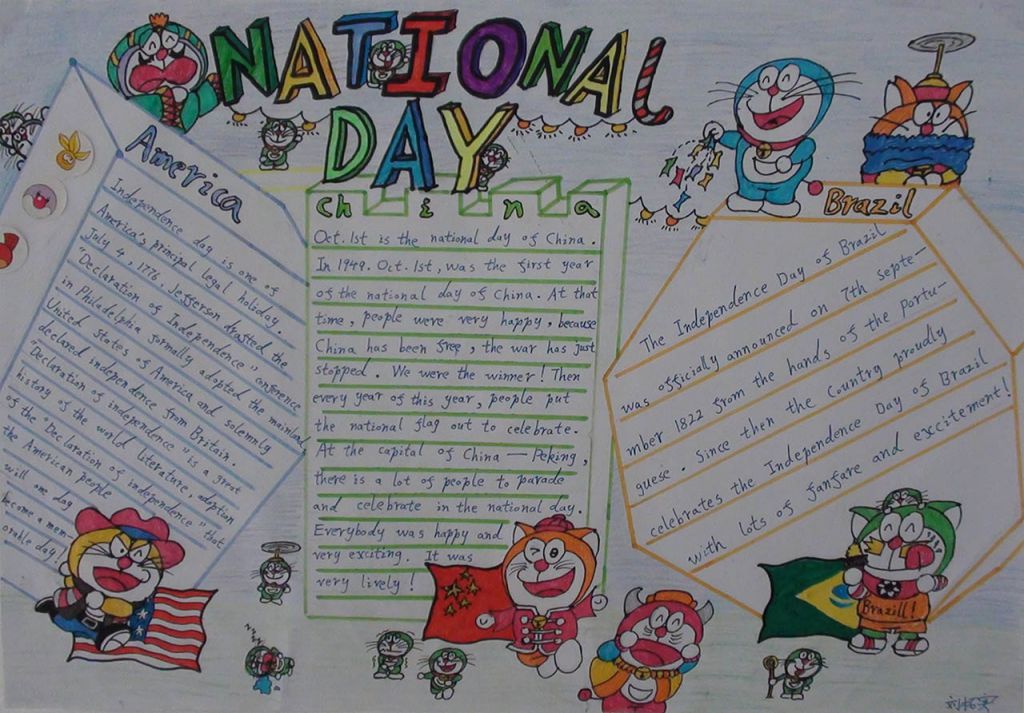 NATIONAL
DAY
America
Independence day is one of
America's principal legal holiday.
July 4, 1776, Jefferson drafted the
"Declaration of Independence" conference
in Philadelphia formally adopted the mainland
United States of America and solemnly
declared independence from Britain.
"Declaration of independence" is a great
history of the world literature, adoption
of the "Declaration of independence" that
the American people
will one day
become a mem-
orable day!
China
Oct. 1st is the national day of China.
In 1949. Oct. 1st, was the first year
of the national day of China. At that
time, people were very happy, because
China has been free, the war has just
stopped. We were the winner! Then
every year of this year, people put
the national flag out to celebrate.
At the capital of China — Peking,
there is a lot of people to parade
and celebrate in the national day.
Everybody was happy and
very exciting. It was
very lively!
Brazil
The Independence Day of Brazil
was officially announced on 7th septe-
mber 1822 from the hands of the Portu-
guese. Since then the Country proudly
celebrates the Independence Day of Brazil
with lots of fanfare and excitement!
Brazill!